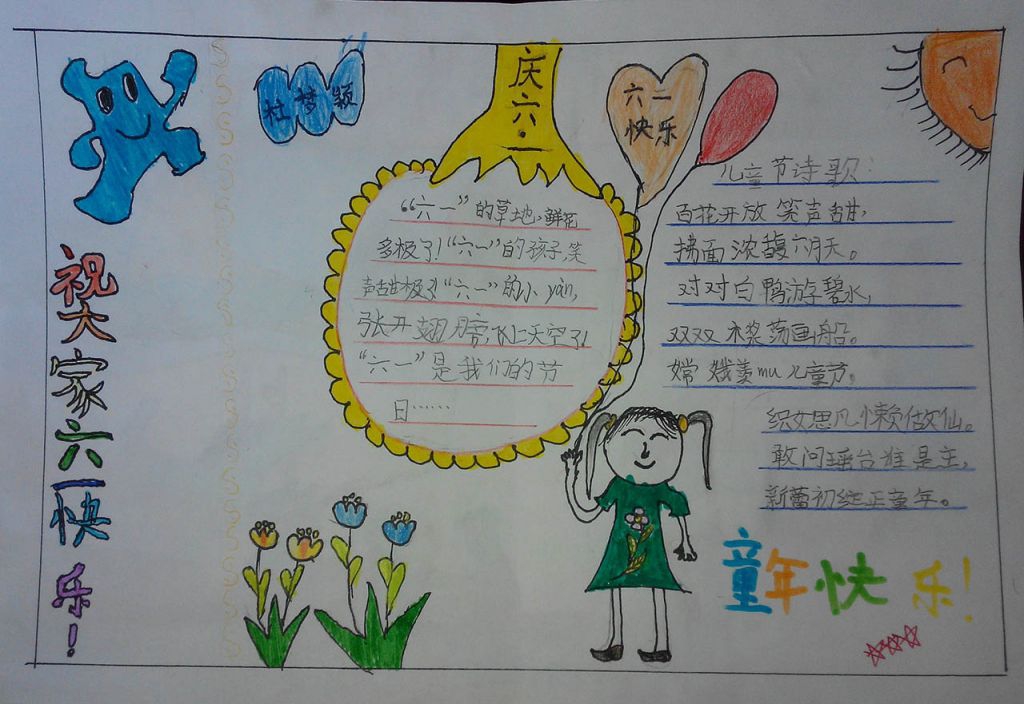 祝大家六一快乐！
杜梦颖
庆六·一
六一
快乐
“六一”的草地，鲜花
多极了！“六一”的孩子，笑
声甜极了！“六一”的小yàn，
张开翅膀，飞上天空了！
“六一”是我们的节
日……
儿童节诗歌：
百花开放笑声甜，
拂面浓馥六月天。
对对白鸭游碧水，
双双木桨荡画船。
嫦娥羡mu儿童节。
织女思凡懒做仙。
敢问瑶台谁是主，
新蕾初绽正童年。
童年快乐！